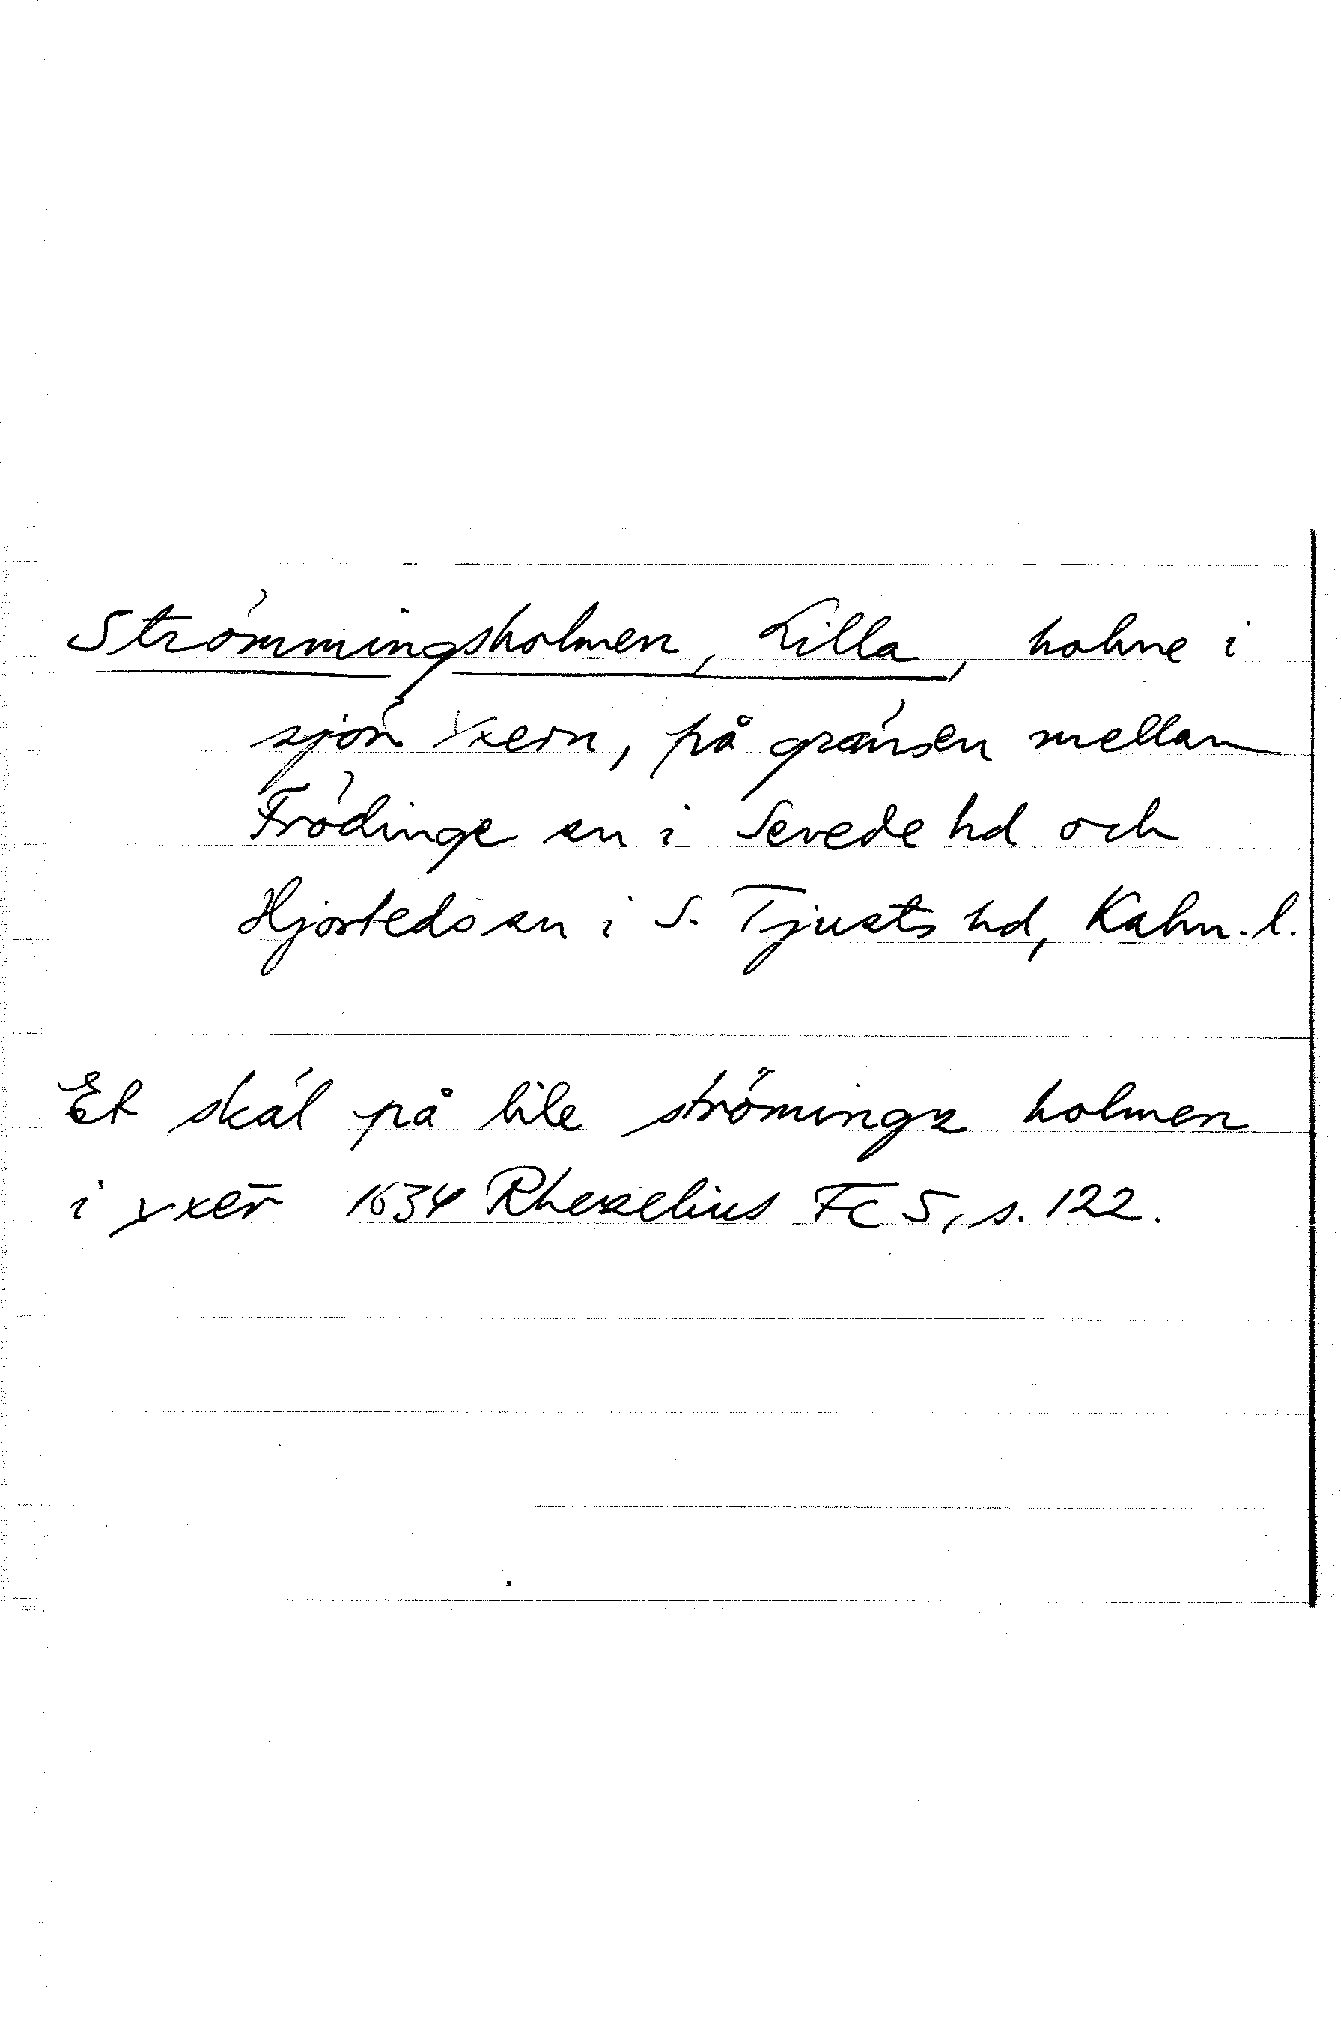 Strömmingsholmen, Lilla, holme i
sjön Yxern, på gränsen mellan
Frödinge sn i Sevede hd och
Hjorteds sn i S. Tjusts hd, Kalm. l.
Et skál på lile strömings holmen
i yxer̄ 1634 Rhezelius Fc 5, s. 122.